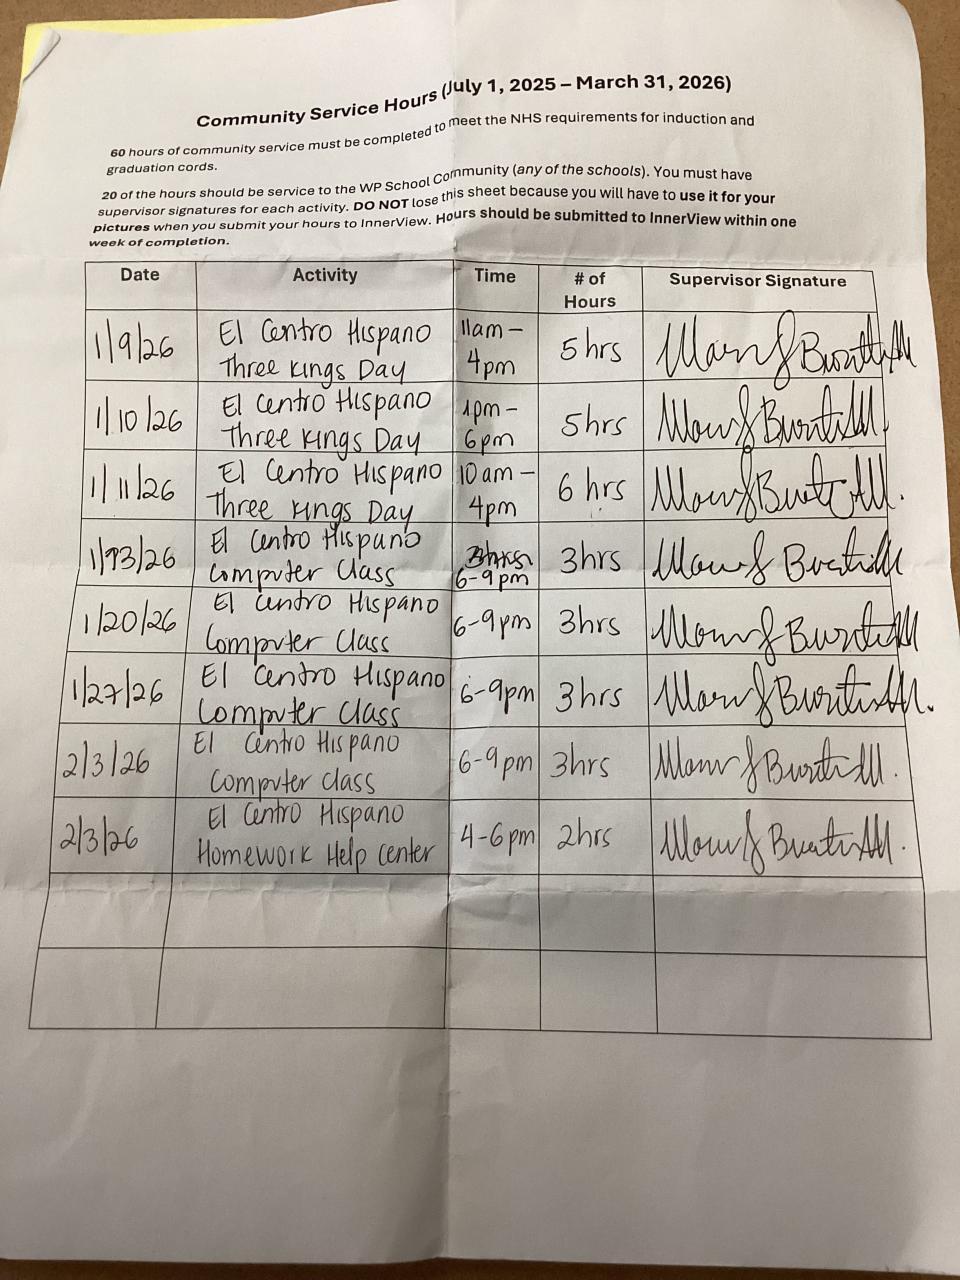 Community Service Hours (July 1, 2025 – March 31, 2026)
60 hours of community service must be completed to meet the NHS requirements for induction and
graduation cords.
20 of the hours should be service to the WP School Community (any of the schools). You must have
supervisor signatures for each activity. DO NOT lose this sheet because you will have to use it for your
pictures when you submit your hours to InnerView. Hours should be submitted to InnerView within one
week of completion.
Date Activity Time # of Hours Supervisor Signature
1/9/26 El Centro Hispano Three Kings Day 11am – 4pm 5 hrs
1/10/26 El Centro Hispano Three Kings Day 1pm – 6pm 5hrs
1/11/26 El Centro Hispano Three Kings Day 10am – 4pm 6 hrs
1/13/26 El Centro Hispano Computer Class 6-9pm 3hrs
1/20/26 El Centro Hispano Computer Class 6-9pm 3hrs
1/27/26 El Centro Hispano Computer Class 6-9pm 3hrs
2/3/26 El Centro Hispano Computer Class 6-9pm 3hrs
2/3/26 El Centro Hispano Homework Help Center 4-6pm 2hrs